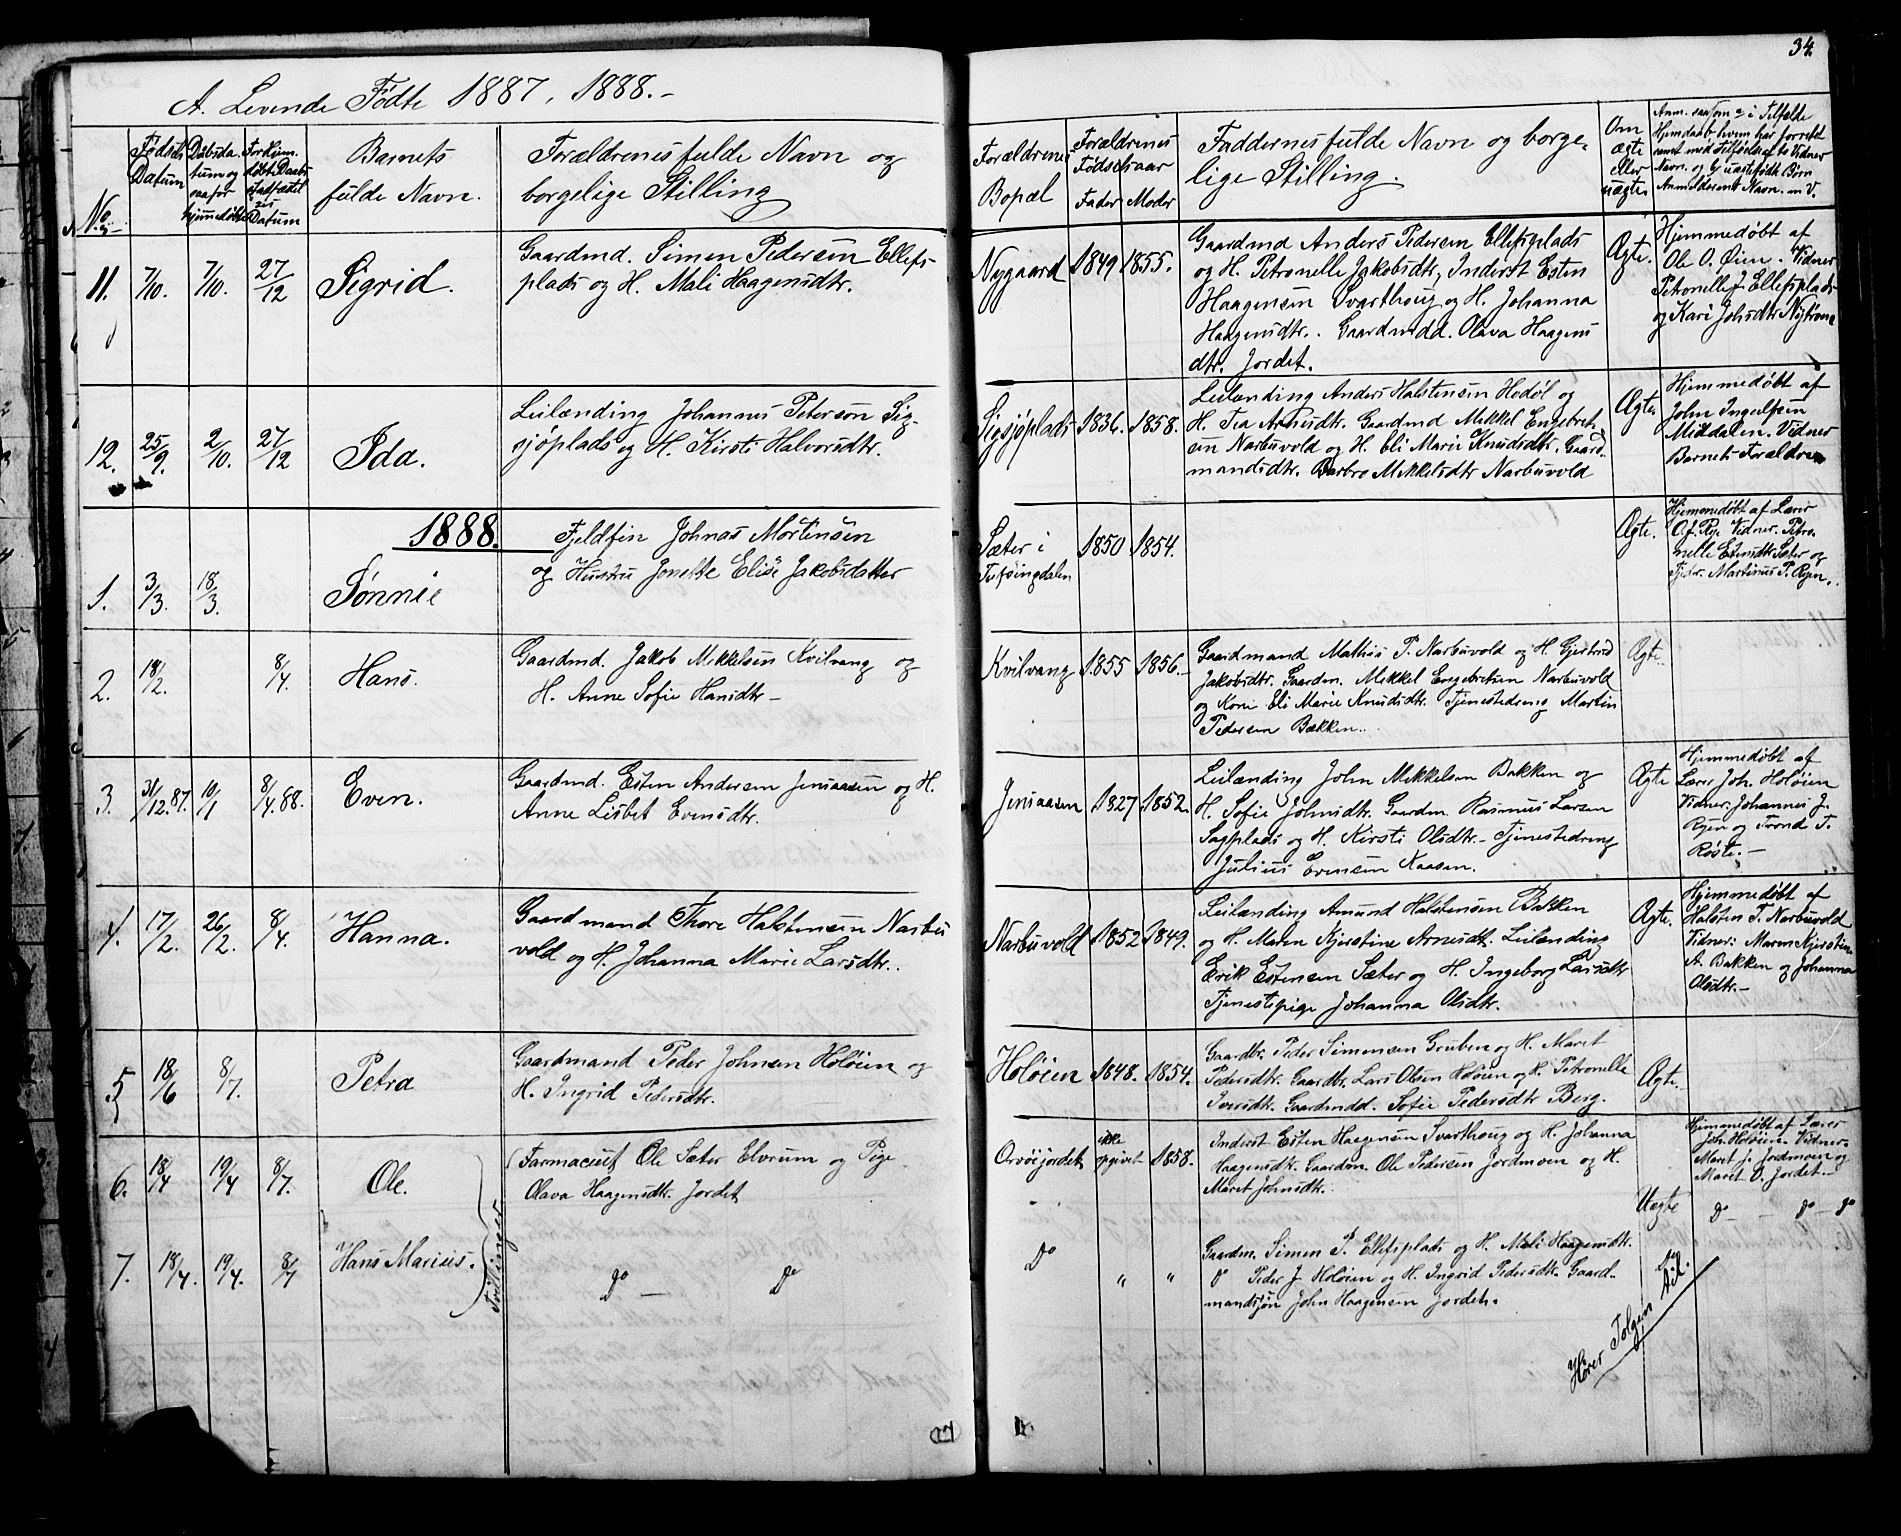 34.
A. Levende Fødte 1887, 1888.-
No
Fødsels
Datum
Daabsda-
tum og
saafor
hjemmedøbte
Datum
Barnets
fulde Navn.
Forældrenes fulde Navn og
borgelige Stilling
Forældrenes
Bopæl
Forældrenes
Fødselsaar
Fader Moder
Faddernes fulde Navn og borge-
lige Stilling.
Om
ægte
eller
uægte
11. 7/10. 7/10. 27/12 Sigrid.
Gaardmd. Simen Pedersen Ellefs-
plads og H. Mali Haagensdtr.
Nygaard 1849 1855.
Gaardmd Anders Pedersen Ellefsplads
og H. Petronelle Jakobsdtr, Inderst Esten
Haagensen Svarthoug og H. Johanna
Haagensdtr. Gaardmdd. Olava Haagens
dtr. Jordet.
Ægte.
Hjemmedøbt af
Ole O. Øien. Vidner
Petronelle J Ellefsplads
og Kari Johsdtr Nytrøen
12. 25/9. 2/10. 27/12 Ida.
Leilænding Johannes Petersen Sig-
sjøplads og H. Kirsti Halvorsdtr.
Sigsjøplads 1836. 1858.
Leilænding Anders Halstensen Hodøl og
H. Tea Arnesdtr. Gaardmd Mikkel Engebret-
sen Narbuvold og H. Eli Marie Knudsdtr, Gaard-
mandsdtr. Barbro Mikkelsdtr Narbuvold
Ægte
Hjemmedøbt af
John Ingelfsen
Middalen. Vidner
Barnets Forældre
1888.
1. 3/3. 18/3. Sønnie
Fjeldfin Johnas Mortensen
og Hustru Jonette Elise Jakobsdatter
Sæter i
Tufsingdalen
1850 1854.
Ægte.
Hjemmedøbt af Lærer
O. P. Rye Vidner. Petro-
nelle Estensdtr Sæter og
Martinus P. Ryen.
2. 18/2. 8/4. Hans.
Gaardmd. Jakob Mikkelsen Kvilvang og
H. Anne Sofie Hansdtr -
Kvilvang 1855 1856.-
Gaardmand Mathis P. Narbuvold og H. Gjertrud
Jakobsdtr. Gaardm. Mikkel Engebretsen Narbuvold
og Kone Eli Marie Knudsdtr. Tjenestedreng Martin
Pedersen Bækken.
Ægte.
3. 31/12.87. 10/1 8/4.88. Even.
Gaardmd. Esten Andersen Jensaasen og H.
Anne Lisbet Evensdtr.
Jensaasen 1827 1852.
Leilænding John Mikkelsen Bakken og
H. Sofie Johnsdtr. Gaardm. Rasmus Larsen
Sagplads og H. Kirsti Olsdtr.- Tjenestedreng
Julius Evensen Naasen.
Ægte
Hjemmedøbt af
Lærer Joh. Holøien
Vidner. Johannes J.
Ryen og Trond T.
Røste.-
4. 17/2. 26/2. 8/4. Hanna.
Gaardmand Thore Halstensen Narbu
vold og H. Johanna Marie Larsdtr.
Narbuvold 1852 1849.
Leilænding Amund Halstensen Bakken
og H. Maren Kjerstine Arnesdtr. Leilænding
Erik Estensen Sæter og H. Ingeborg Larsdtr
Tjenestepige Johanna Olsdtr.
Ægte.
Hjemmedøbt af
Halsten T. Narbuvold
Vidner: Maren Kjerstine
A. Bakken og Johanna
Olsdtr.-
5 18/6 8/7. Petra
Gaardmand Peder Johnsen Holøien og
H. Ingrid Pedersdtr.
Holøien 1848. 1854.
Gaardbr. Peder Simensen Gruben og H. Maret
Pedersdtr. Gaardbr. Lars Olsen Holøien og H. Petronelle
Iversdtr. Gaardmdd. Sofie Pedersdtr Berg.
Ægte.
6. 18/4 19/4 8/7. Ole.
Farmaceut Ole Sæter Elvrum og Pige
Olava Haagensdtr. Jordet
Orvøijordet ikke
opgivet 1858.
Inderst Esten Haagensen Svarthoug og H. Johanna
Haagensdtr. Gaardm. Ole Pedersen Jordmoen og H.
Maret Johnsdtr.
Uægte
Hjemmedøbt af Lærer
John Holøien. Vidner.
Maret J. Jordmoen og
Maret O. Jordet.-
do - do - do
7. 18/4. 19/4. 8/7 Hans Marius.
Tvillinger
do - do
Do " "
Gaardm. Simen P. Ellefsplads og H. Mali Haagensdtr.
do Peder J. Holøien og H. Ingrid Pedersdtr. Gaard-
mandssøn John Haagensen Jordet.
Hører Tolgen til.